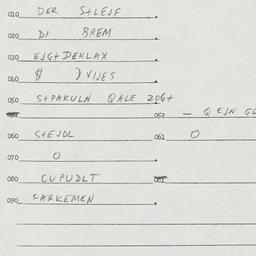 010 DER S+LEJF
020 DI BREM
030 EJG+DEKLAX
040 $ ) VIJES
050 S+PAKULN QALE ZOG+
052 — Q EJN GL
060 S+EJDL 061 O
070 O
080 CUPUDLT
090 FARKEMEN